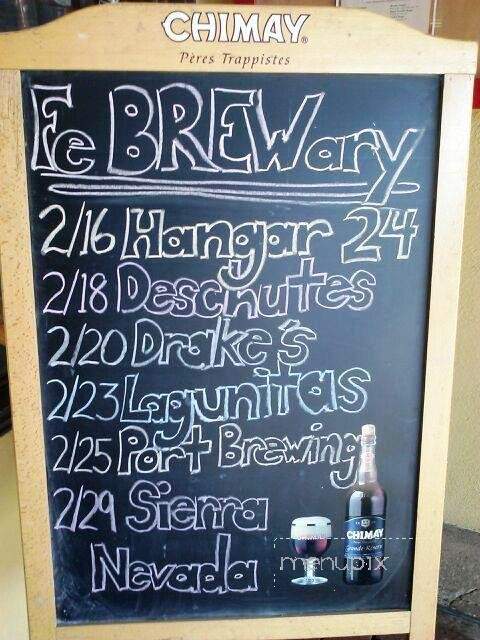 CHIMAY®
Pères Trappistes
FeBREWary
2/16 Hangar 24
2/18 Deschutes
2/20 Drake's
2/23 Lagunitas
2/25 Port Brewing
2/29 Sierra
Nevada
CHIMAY
CHIMAY
Grande Réserve
menupix